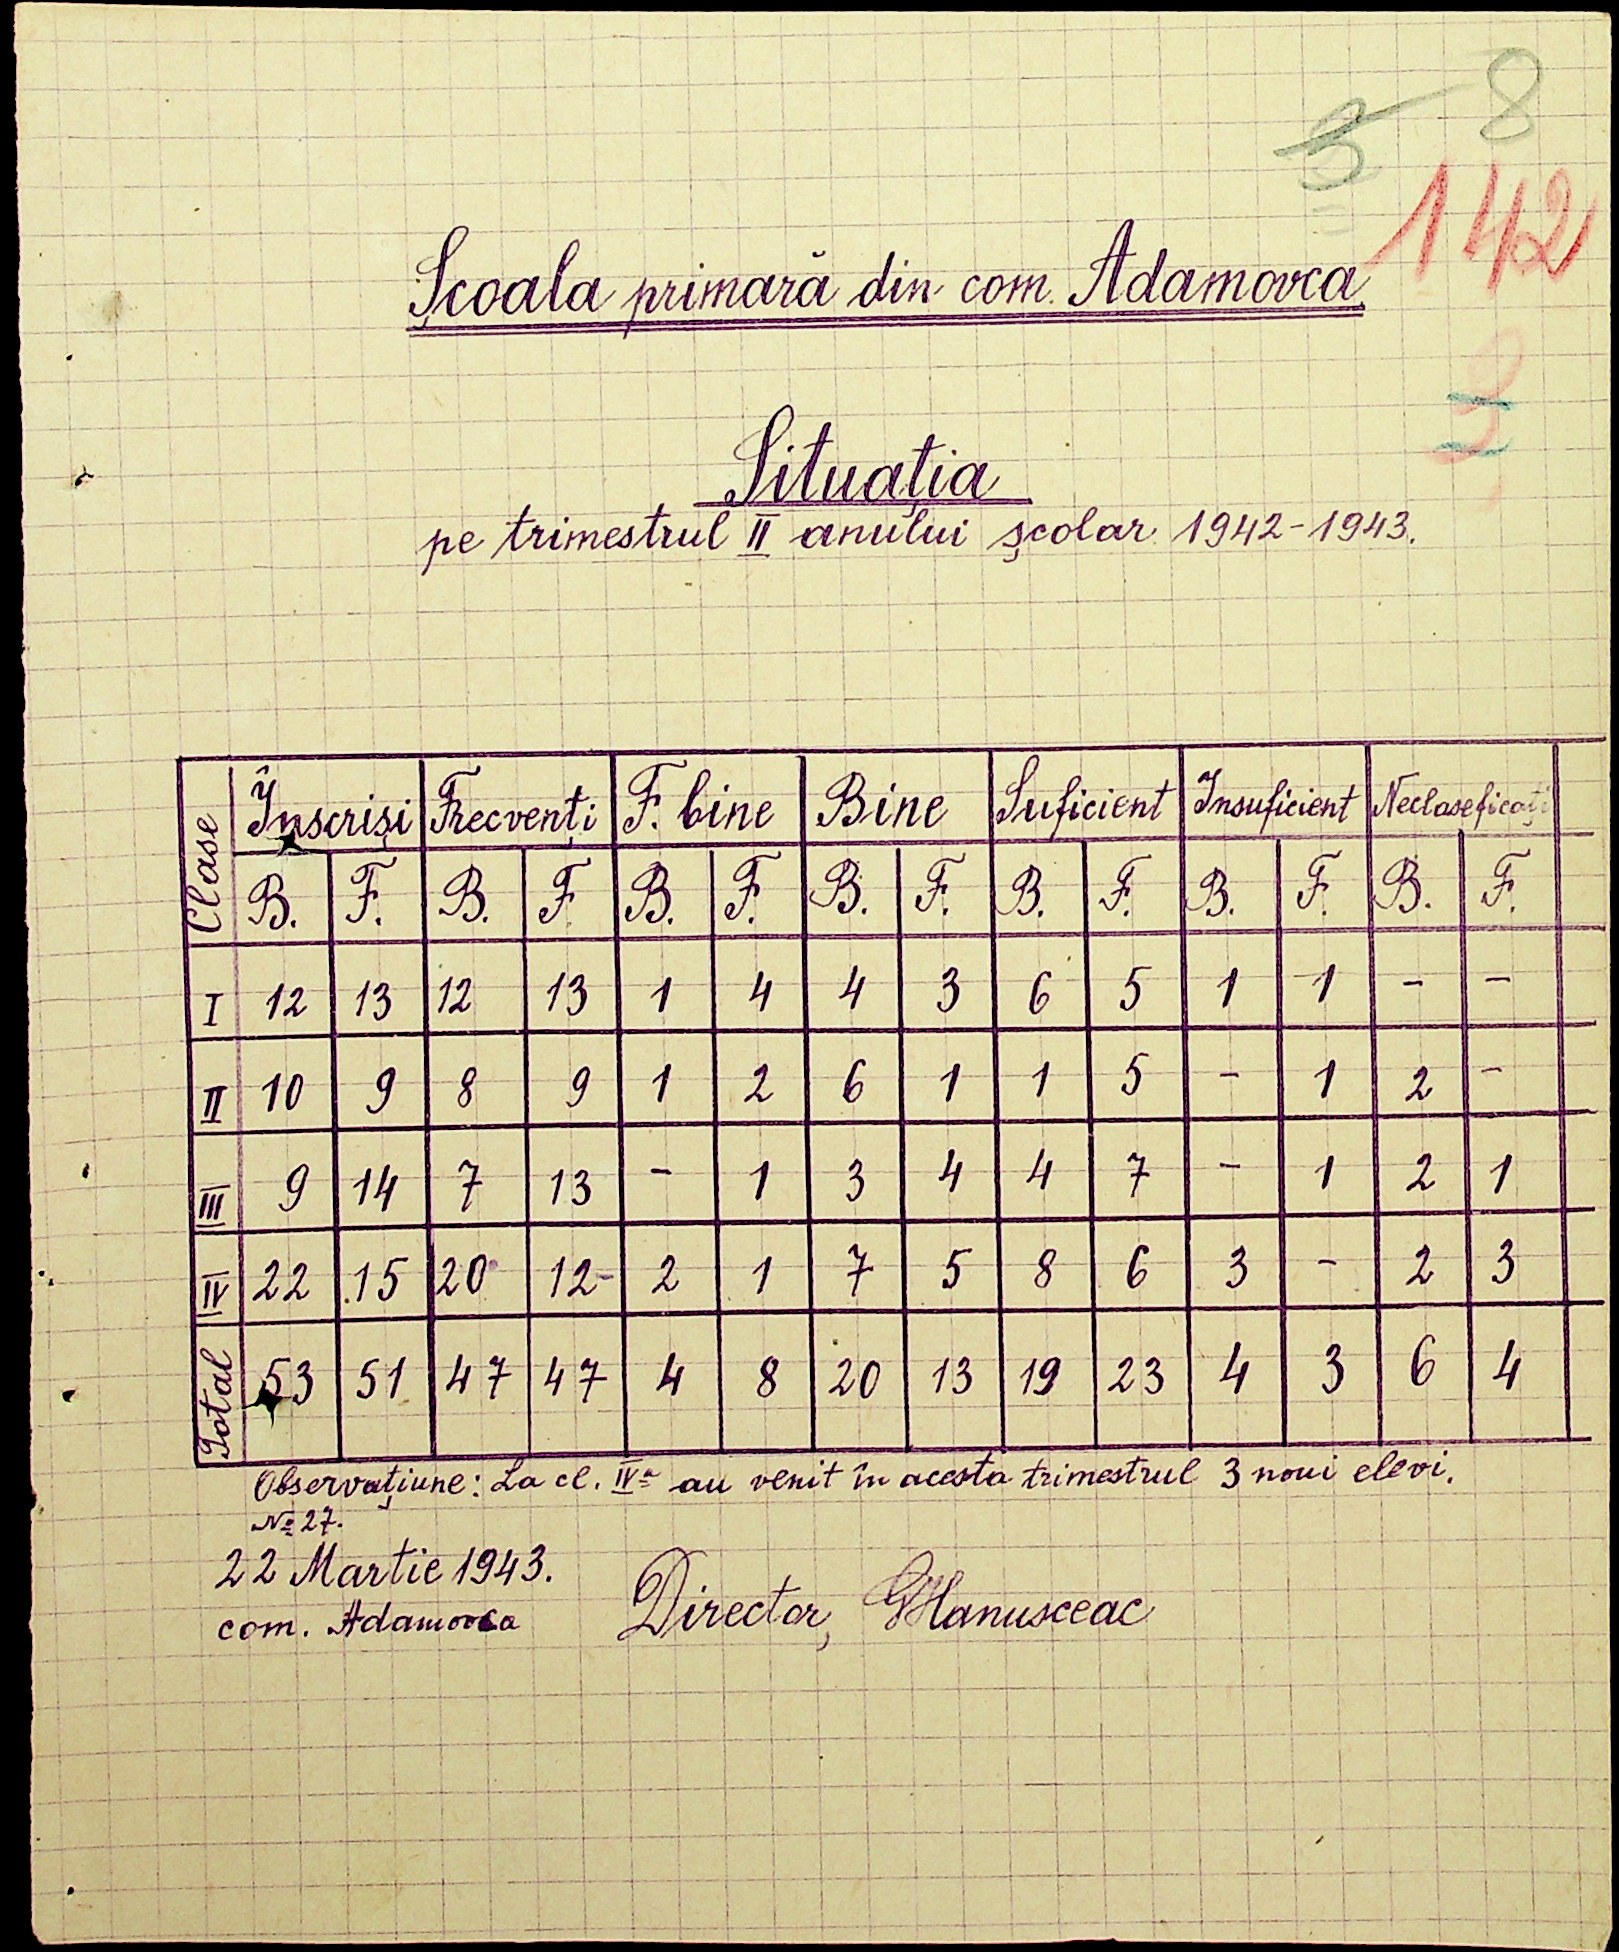 8
142
Școala primară din com. Adamovca
Situația
pe trimestrul II anului școlar 1942-1943.
Clase Înscriși Frecvenți F. bine Bine Suficient Insuficient Neclaseficați
B. F. B. F B. F. B. F. B. F. B. F. B. F.
I 12 13 12 13 1 4 4 3 6 5 1 1 - -
II 10 9 8 9 1 2 6 1 1 5 - 1 2 -
III 9 14 7 13 - 1 3 4 4 7 - 1 2 1
IV 22 15 20 12 2 1 7 5 8 6 3 - 2 3
Total 53 51 47 47 4 8 20 13 19 23 4 3 6 4
Observațiune: La cl. IVª au venit în acesta trimestrul 3 noui elevi.
№ 27.
22 Martie 1943.
com. Adamovca
Director, GHanusceac